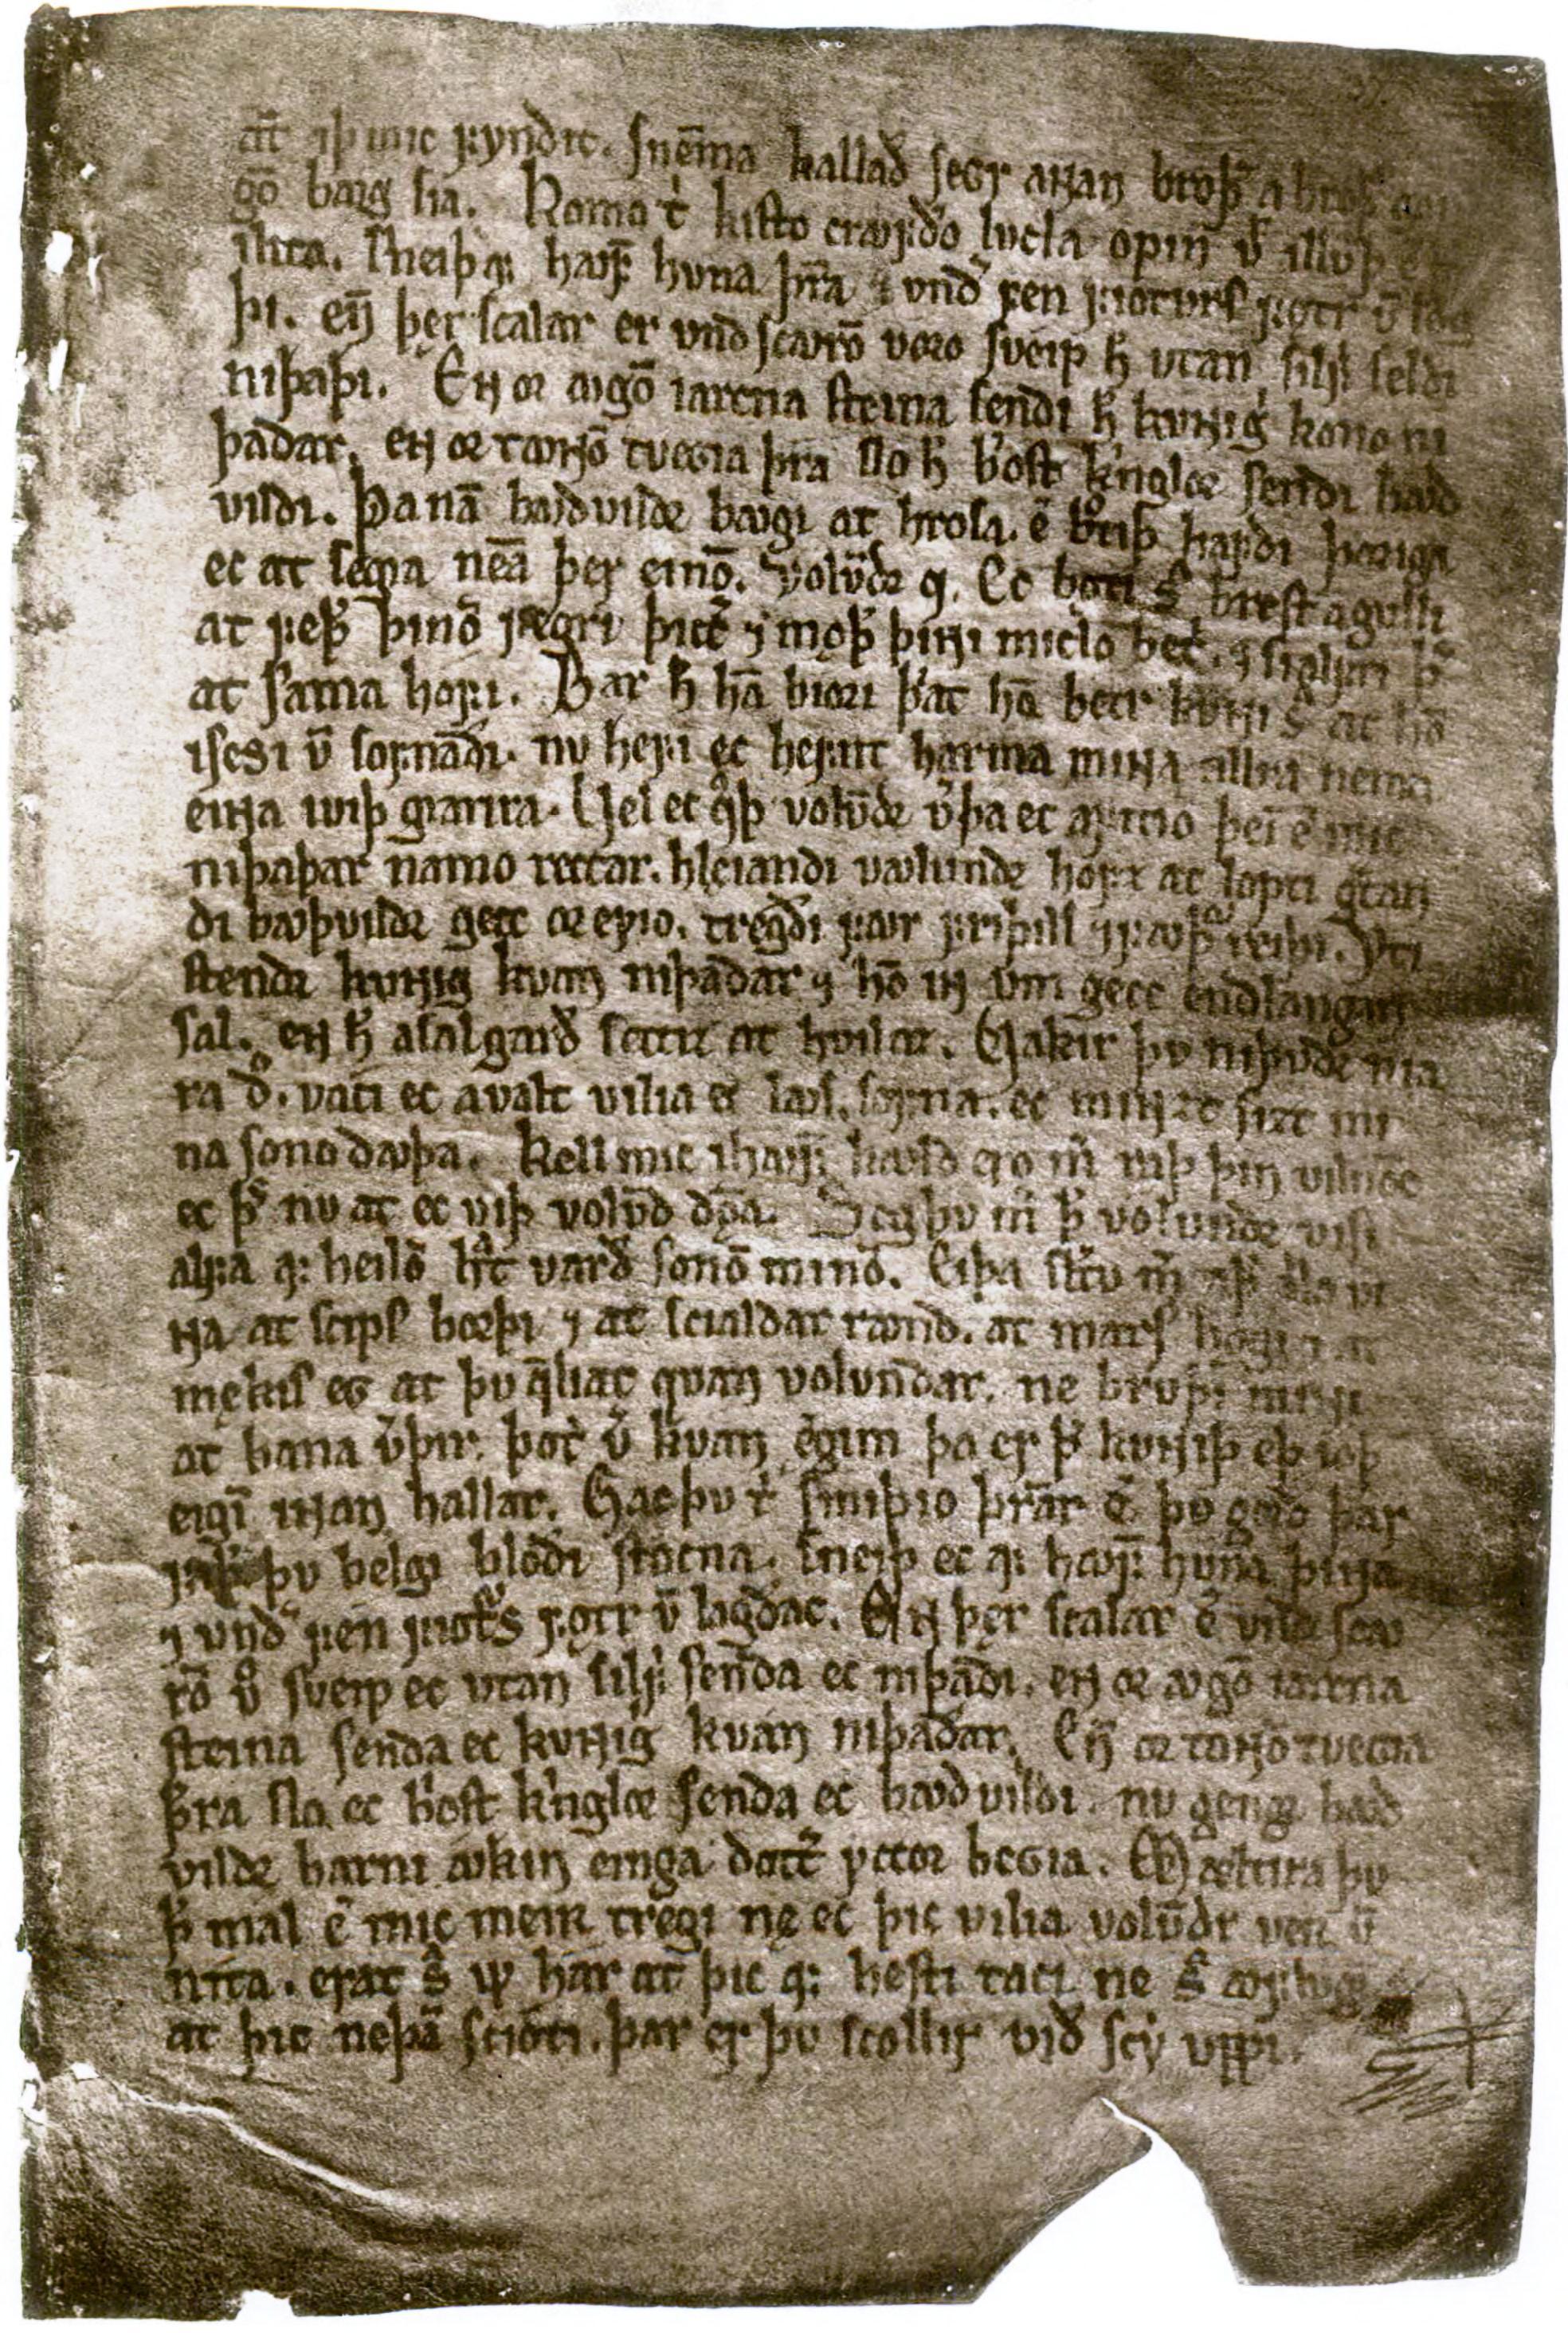 at iþ mic fyndit. Snēma kallaðͬ segr aɴan broþ͛ a broþ͛
gō baug sia. Komo t̓ kisto crǫfðo lucla opin v͛ illvþ
ilito. Sneiþ q̣ː hǫfꝫ hvna þr̄a ⁊ vnd͛ fen fioturs fǫtr v̄ lag
þi. eɴ þęr scalar er vnd scǫrō voro sveip h̄ vtan silfꝛi seldi
niþaþi. Eɴ or ǫgō iarcna steina sendi h̄ kvɴigͥ kono ni
þaðar. eɴ or tǫɴō tveGia þr̄a slo h̄ b͛ost k͛nglor sendi bꜹð
vildi. Þa nā bꜹðvildr bꜹgi at hrosa. ē b͛tiþ hafdi þoriga
ec at segia nēa þer einō. Volv̄dr q. Ec bǫti s͛ brest agulli
at feþ͛ þinō fegri þicc͛ ⁊ mǫþ͛ þiɴi miclo bet͛. ⁊ sialfri þ͛
at sama hofi. Bar h̄ hā biori þ͛at hā betr kvɴi s͛ at hō
isesi v̄ sofnaði. nu hefi ec hefnt harma miɴa allra nema
eiɴa iviþ giarira. Vel ec qͦþ volv̄dr v͛þa ec a fitio þeī ē mic
niþaþar namo reccar. hlęiandi vꜹlundr hofz at lopti g͛tan
di bꜹþvildr gecc or eyio. tregði fǫr friþils ⁊ fǫþ͛ reiþi. Vti
stendr kvɴig kvan niþaðar ⁊ hō iɴ vm gecc endlangan
sal. eɴ h̄ asalgarð settiz at hvilaz. Vakir þv niþvðr nia
ra d͛. vaki ec avalt vilia ec lꜹs. sofna. ec miɴiz sizt mi
na sono dꜹþa. Kell mic ihǫfꝫ kǫld ero m̄ raþ þin vilnōc
ec þ͛ nv at ec viþ volv̄d dǭa. Seg þv m̄ þ͛ volundr visi
alfa qː heilō hͣt varð sonō minō. Eiþa skͣtv m͛ aþ͛ alla vi
ɴa at scips borþi ⁊ at scialdar rǫnd. at mars bogi ⁊ at
mękis eG at þv q̄liat qvan volundar. ne brvþi miɴi
at bana v͛þir. þot̄ v͛ kvan eigim þa er þ͛ kvɴiþ eþ ioþ
eigī iɴan hallar. Gac þv t̓ smiþio þr̄ar ē þv gorð þar
fiþ͛ þv belgi bloði stocna. sneiþ ec aː hǫfꝫ hvna þiɴa
⁊ vnd͛ fen fiot͛s fǫtr v̄ lagðac. Eɴ þęr scalar ē vnd scꜹ
rō vͦ sveip ec vtan silfꝛi senda ec niþaði. eɴ or ꜹgō iarcna
steina senda ec kvɴig kvan niþaðar. Eɴ or tǫɴō tveGia
þr̄a slo ec b͛ost k͛nglor senda ec bꜹðvildi. nv gengr bꜹð
vildr barni ꜹkin einga dott͛ yccor beGia. Męltira þv
þ͛ mal ē mic meir tregi nę ec þic vilia volv̄dr ver v̄
nita. erat s͛ m̄ har at þic aː hesti taki ne s͛ ꜹflvgr
at þic neþā scioti. þar er þv scollir við scy vppi.